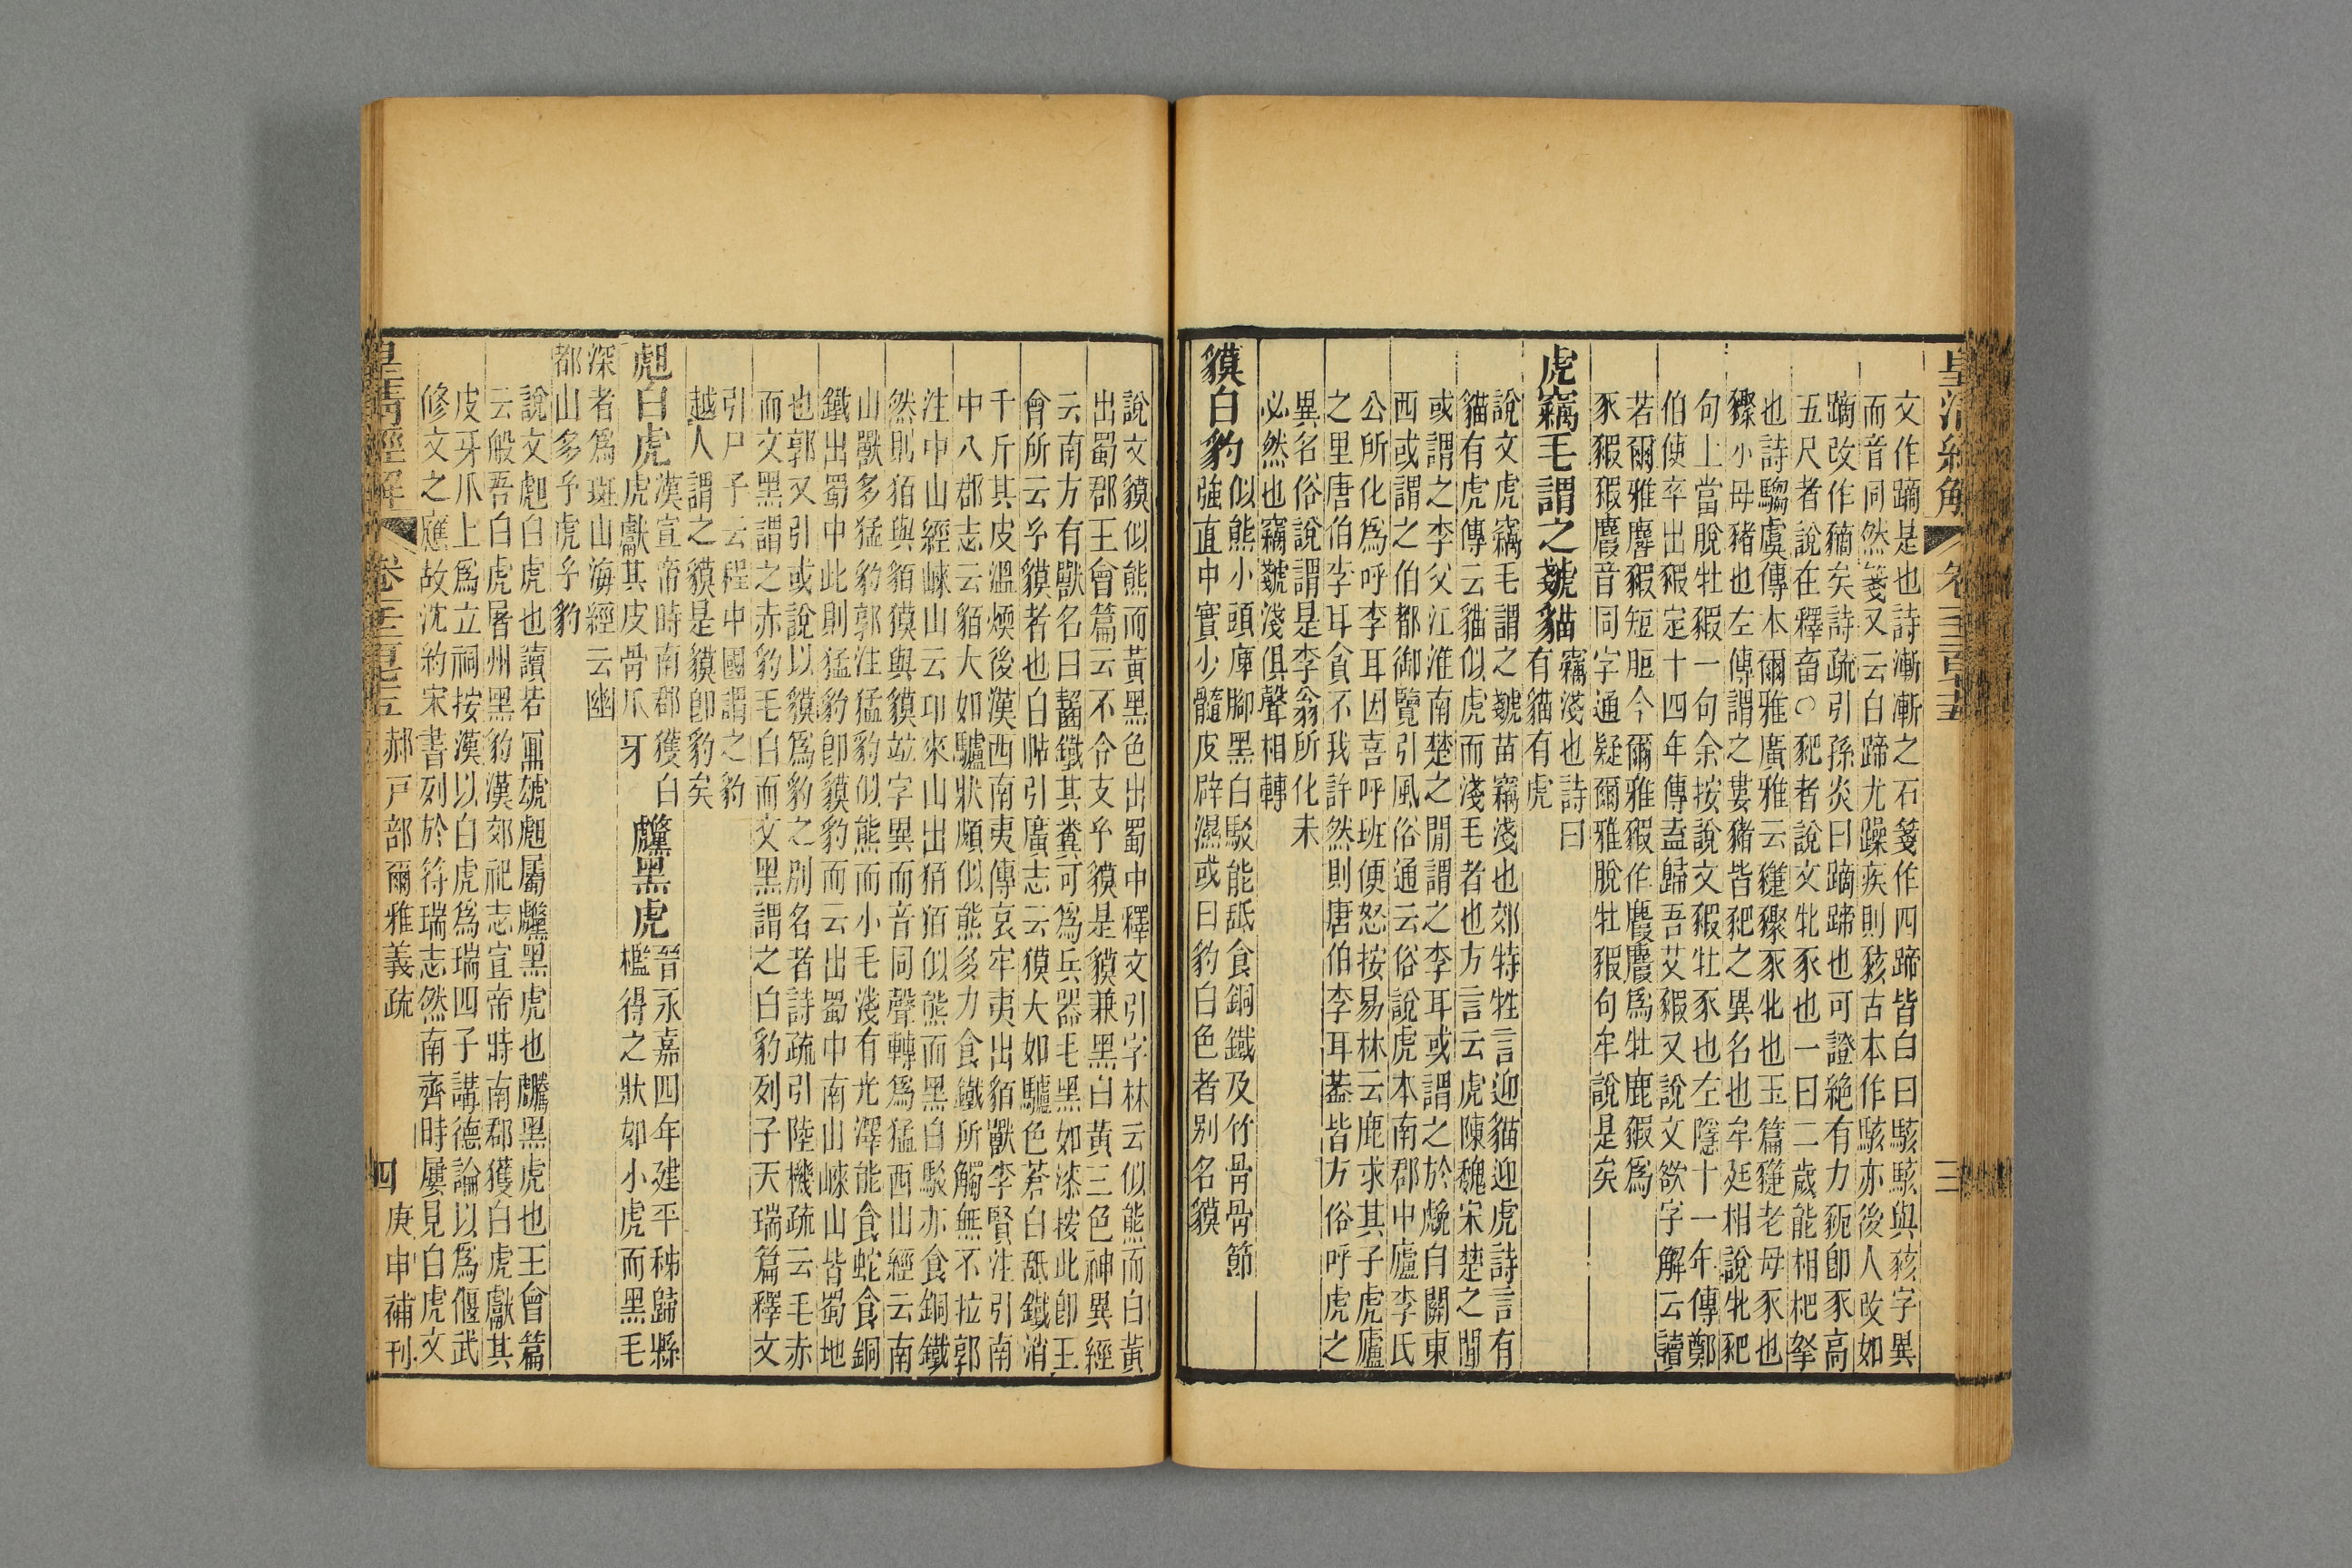 文作蹢是也詩漸漸之石箋作四蹄皆白曰駭駭與豥字異
而音同然箋又云白蹄尤躁疾則豥古本作駭亦後人改如
蹢改作豴矣詩疏引孫炎曰蹢蹄也可證絶有力豟卽豕高
五尺者說在釋畜○豝者說文牝豕也一曰二歲能相杷拏
也詩騶虞傳本爾雅廣雅云豵豕牝也玉篇老母豕也
小母豬也左傳謂之婁豬皆豝之異名也牟廷相說牝豝
句上當脫牡豭一句余按說文豭牡豕也左隱十一年傳鄭
伯使卒出豭定十四年傳盍歸吾艾豭又說文欲字解云讀
若爾雅麔豭短脰今爾雅豭作麚麚爲牡鹿豭爲
豕豭豭麚音同字通疑爾雅脫牡豭句牟說是矣
虎竊毛謂之虦貓
竊淺也詩曰
有貓有虎
說文虎竊毛謂之虦苗竊淺也郊特牲言迎貓迎虎詩言有
貓有虎傳云貓似虎而淺毛者也方言云虎陳魏宋楚之閒
或謂之李父江淮南楚之閒謂之李耳或謂之於䖘自關東
西或謂之伯都御覽引風俗通云俗說虎本南郡中廬李氏
公所化爲呼李耳因喜呼班便怒按易林云鹿求其子虎廬
之里唐伯李耳貪不我許然則唐伯李耳葢皆方俗呼虎之
異名俗說謂是李翁所化未
必然也竊虦淺俱聲相轉
貘白豹
似熊小頭庳腳黑白駁能舐食銅鐵及竹骨骨節
強直中實少髓皮辟濕或曰豹白色者别名貘
說文貘似熊而黃黑色出蜀中釋文引字林云似熊而白黃
出蜀郡王會篇云不令支乎貘是貘兼黑白黃三色神異經
云南方有獸名曰齧鐵其糞可爲兵器毛黑如漆按此卽王
會所云乎貘者也白帖引廣志云貘大如驢色蒼白舐鐵消
千斤其皮溫煗後漢西南夷傳哀牢夷出貊獸李賢注引南
中八郡志云貊大如驢狀頗似熊多力食鐵所觸無不拉郭
注中山經崍山云邛來山出貊貊似熊而黑白駁亦食銅鐵
然則貊與貊獏與貘竝字異而音同聲轉爲猛西山經云南
山獸多猛豹郭注猛豹似熊而小毛淺有光澤能食蛇食銅
鐵出蜀中此則猛豹卽貘豹而云出蜀中南山崍山皆蜀地
也郭又引或說以貘爲豹之别名者詩疏引陸機疏云毛赤
而文黑謂之赤豹毛白而文黑謂之白豹列子天瑞篇釋文
引尸子云程中國謂之豹
越人謂之貘是貘卽豹矣
甝白虎
漢宣帝時南郡獲白
虎獻其皮骨爪牙
虪黑虎
晉永嘉四年建平秭歸縣
檻得之狀如小虎而黑毛
深者爲斑山海經云幽
都山多乎虎乎豹
說文甝白虎也讀若鼏虪甝屬虪黑虎也騰黑虎也王會篇
云般吾白虎屠州黑豹漢郊祀志宣帝時南郡獲白虎獻其
皮牙爪上爲立祠按漢以白虎爲瑞四子講德論以爲偃武
修文之應故沈約宋書列於符瑞志然南齊時屢見白虎文
皇淸經解
郝戶部爾雅義疏
四
庚申補刊